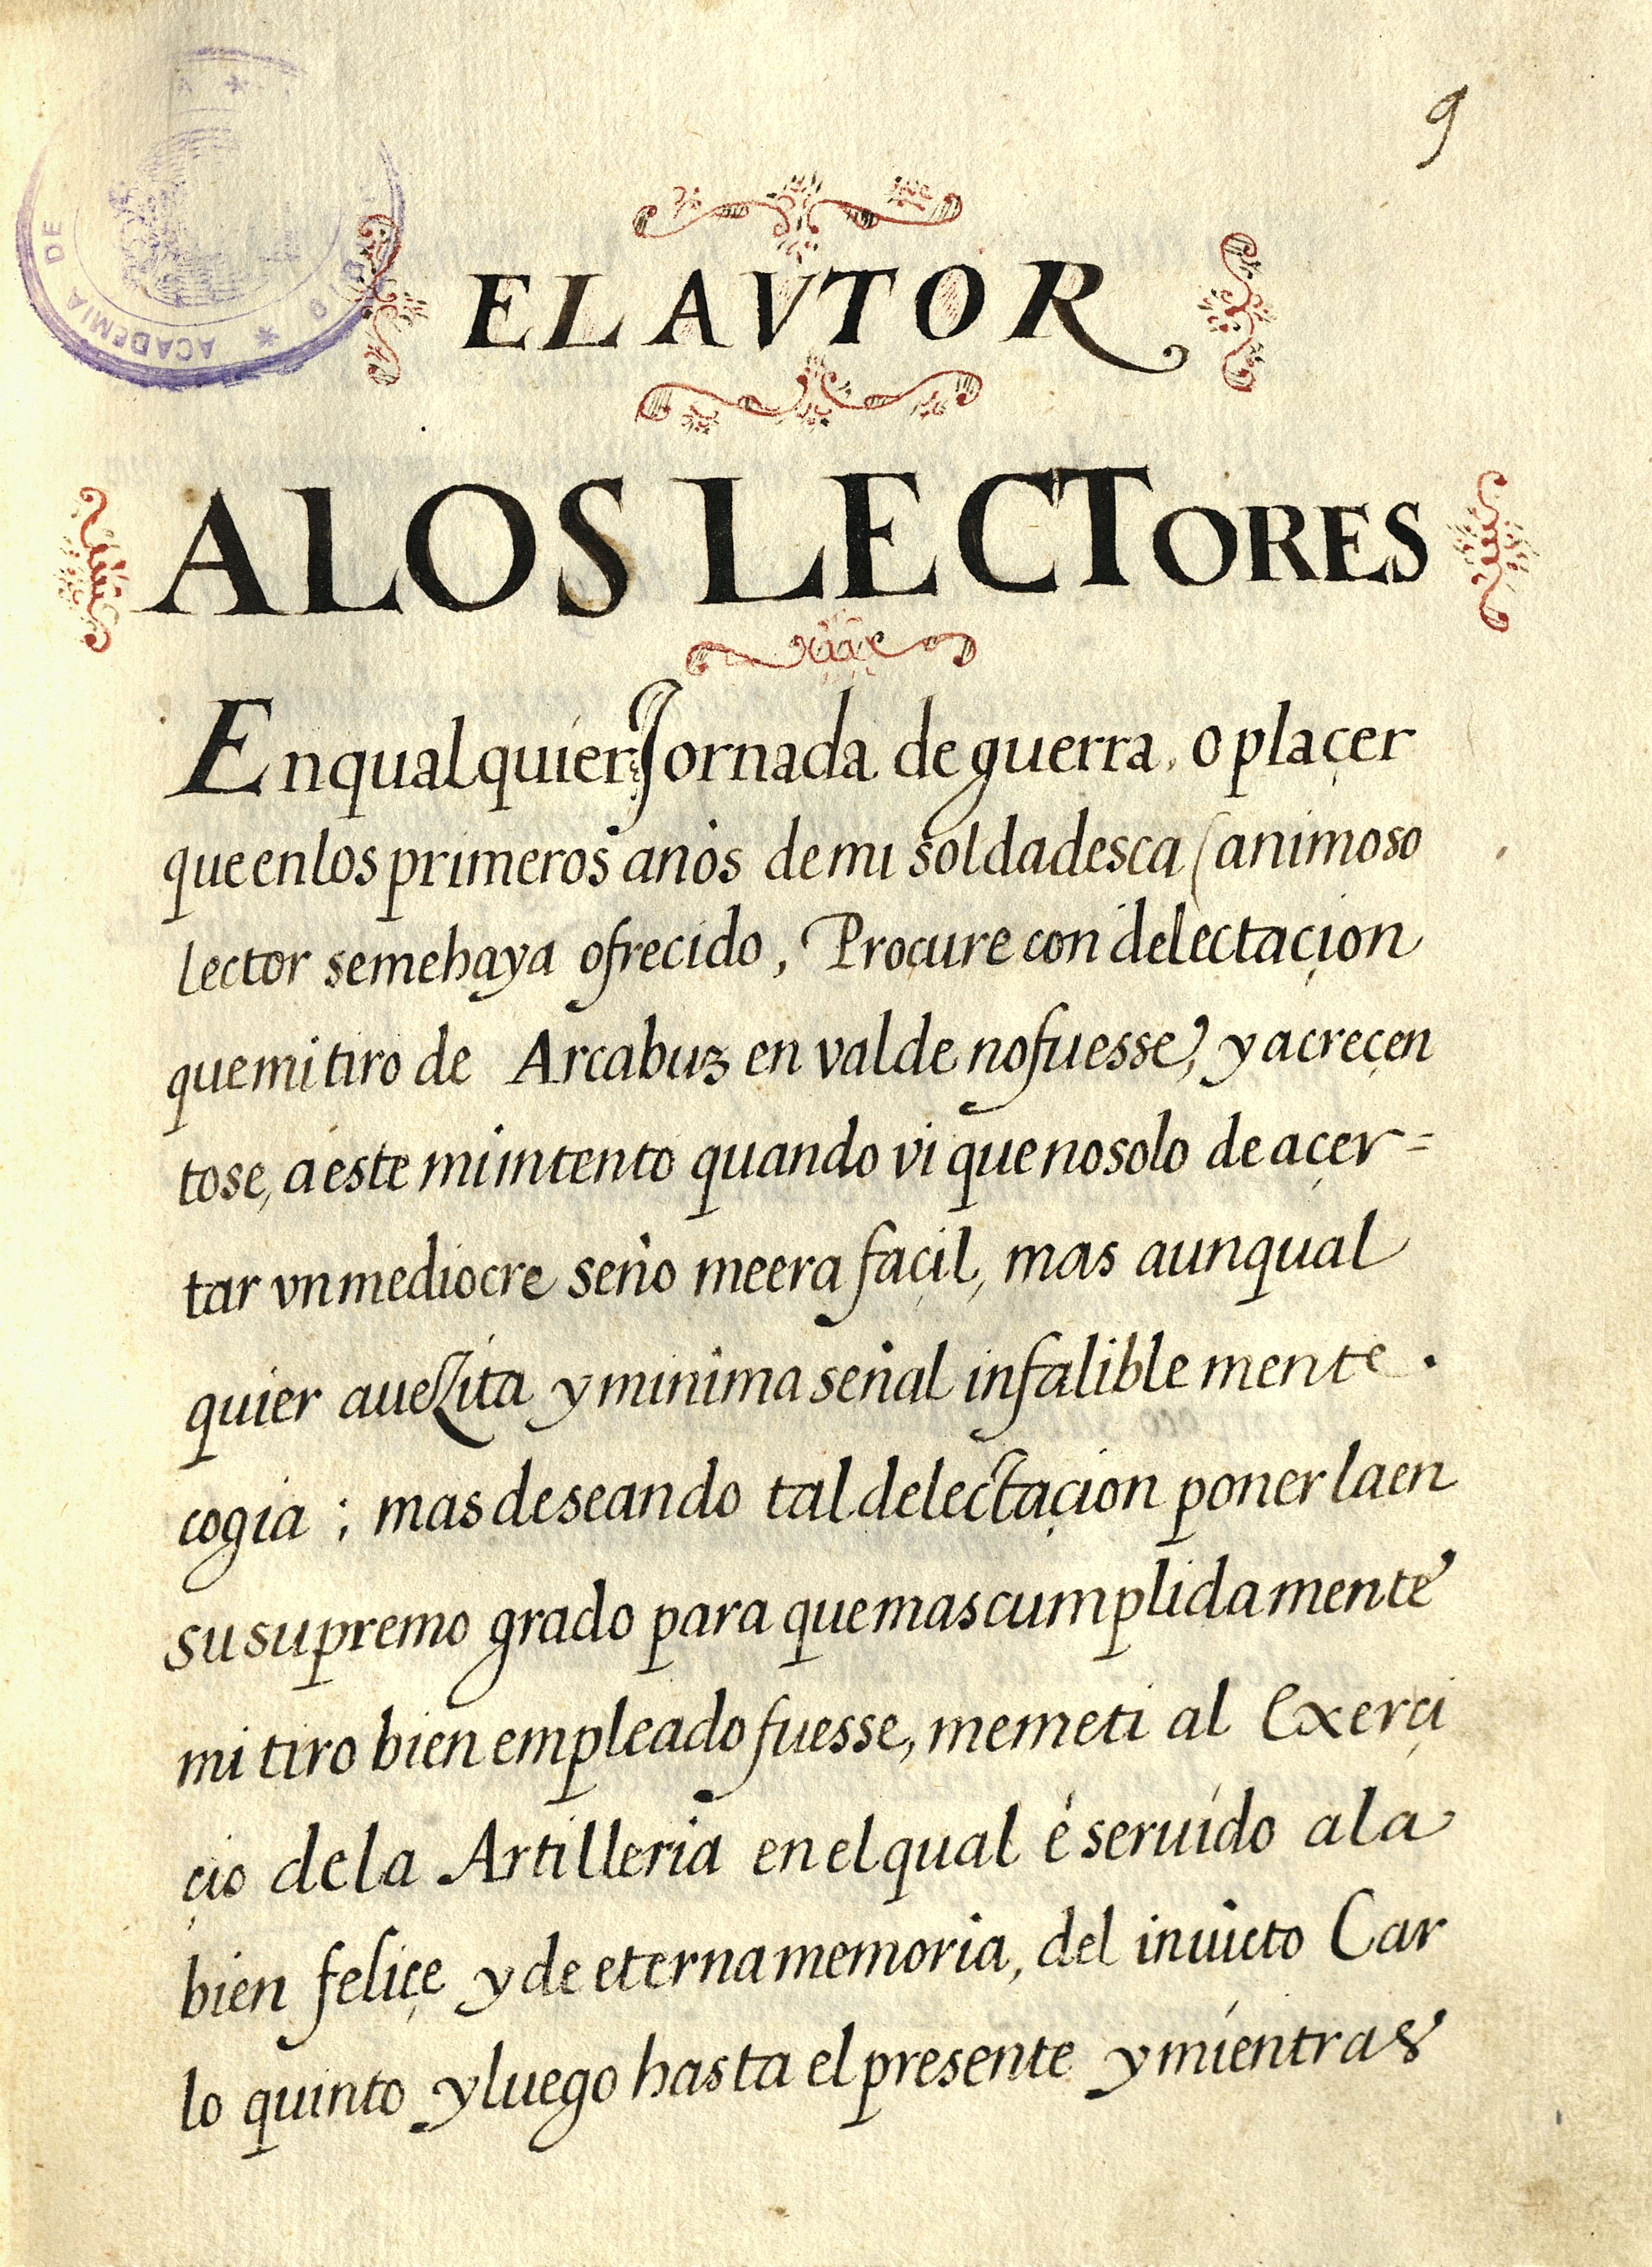 9
ACADEMIA DE
EL AVTOR
A LOS LECTORES
En qualquier Jornada de guerra, o plaçer
que en los primeros años de mi soldadesca (animoso
lector se me haya ofrecido, Procure con delectaçion
que mi tiro de Arcabuz en valde no fuesse, y acreçen
tose, a este mi intento quando vi que no solo de açer=
tar vn mediocre seño me era façil, mas aun qual
quier auezita y minima señal infalible mente.
cogia; mas deseando tal delectaçion poner la en
su supremo grado para que mas cumplidamente
mi tiro bien empleado fuesse, me meti al Exerçi
çio de la Artilleria en el qual é seruido a la
bien feliçe y de eterna memoria, del inuicto Car
lo quinto y luego hasta el presente y mientras